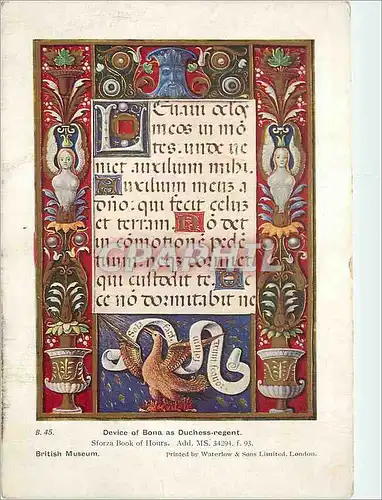 Leuaui oclos
meos in mō
tes. unde ue
niet auxilium mihi.
Auxilium meuz a
dño: qui fecit celuz
et terram. Nō det
in cōmotionē pede
tuum: neqz dormiet
qui custodit te. E
ce nō dormitabit ne
B. 45. Device of Bona as Duchess-regent.
Sforza Book of Hours. Add. MS. 34294, f. 93.
British Museum. Printed by Waterlow & Sons Limited, London.